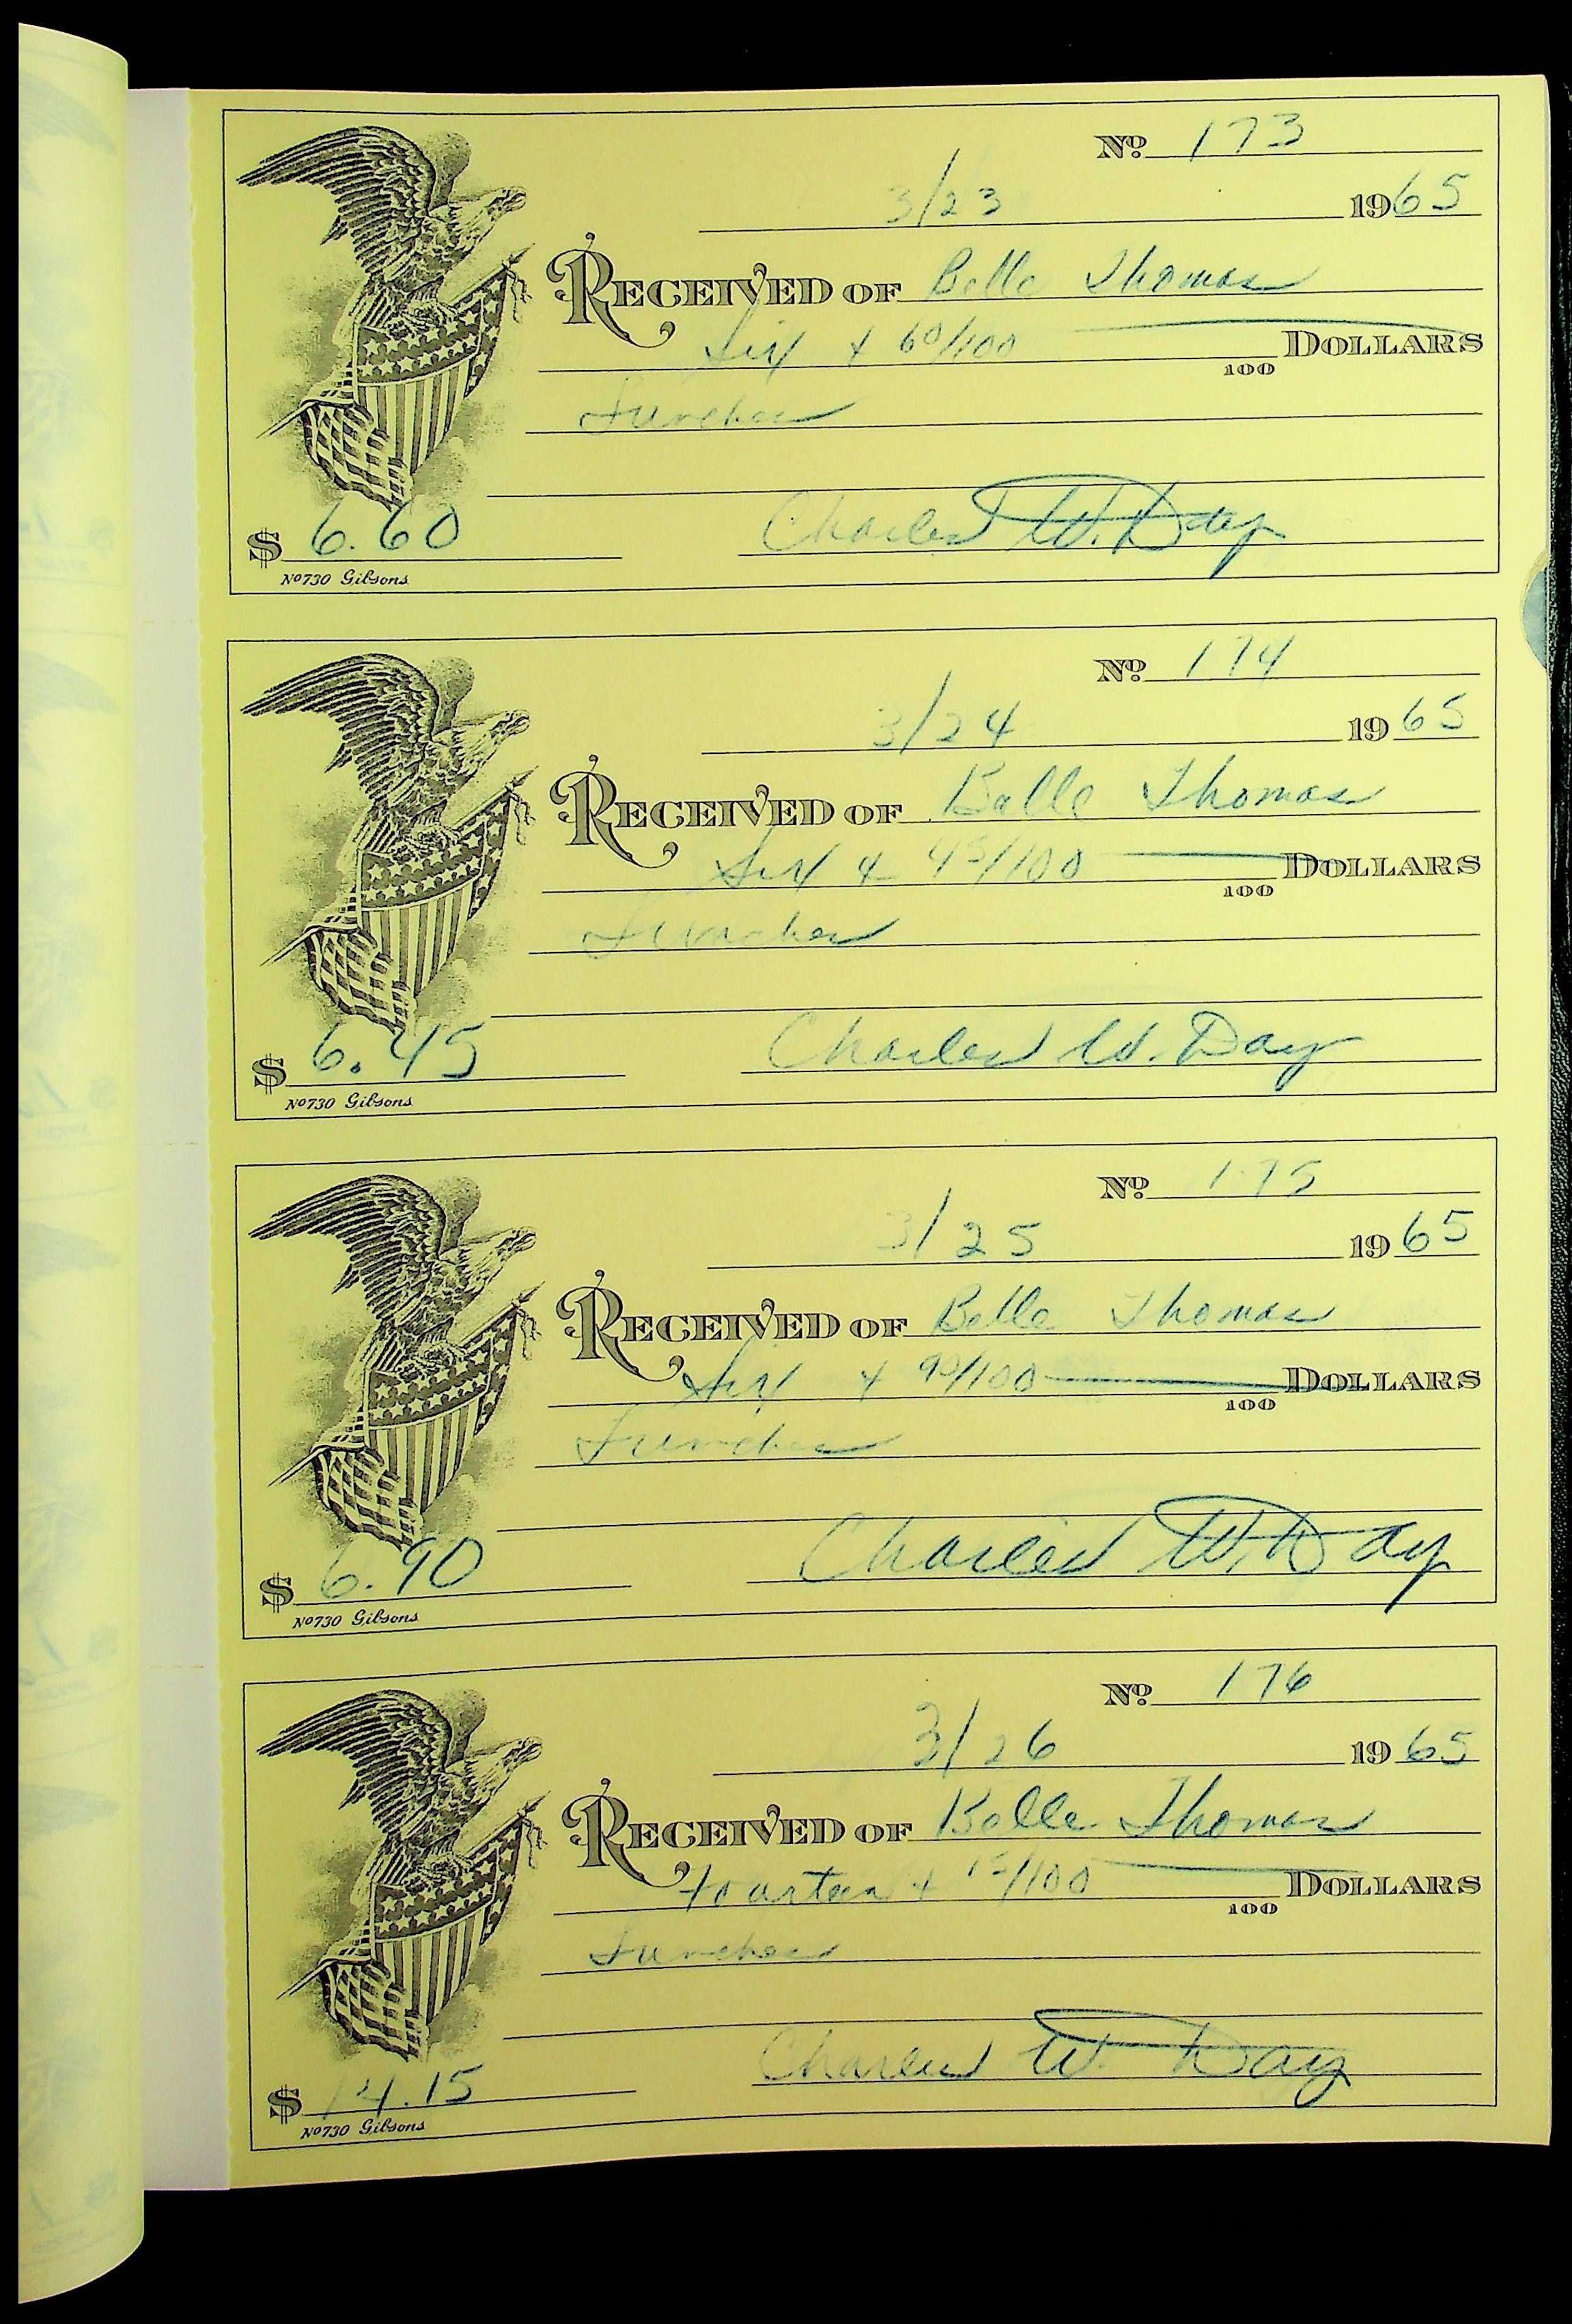 Nº 173
3/23 1965
RECEIVED OF Belle Thomas
Six + 60/100 DOLLARS
100
Lunches
$ 6.60 Charles W. Day
Nº730 Gibsons
Nº 174
3/24 1965
RECEIVED OF Belle Thomas
Six + 45/100 DOLLARS
100
Lunches
$ 6.45 Charles W. Day
Nº730 Gibsons
Nº 175
3/25 1965
RECEIVED OF Belle Thomas
Six + 90/100 DOLLARS
100
Lunches
$ 6.90 Charles W. Day
Nº730 Gibsons
Nº 176
3/26 1965
RECEIVED OF Belle Thomas
fourteen + 15/100 DOLLARS
100
Lunches
$ 14.15 Charles W. Day
Nº730 Gibsons